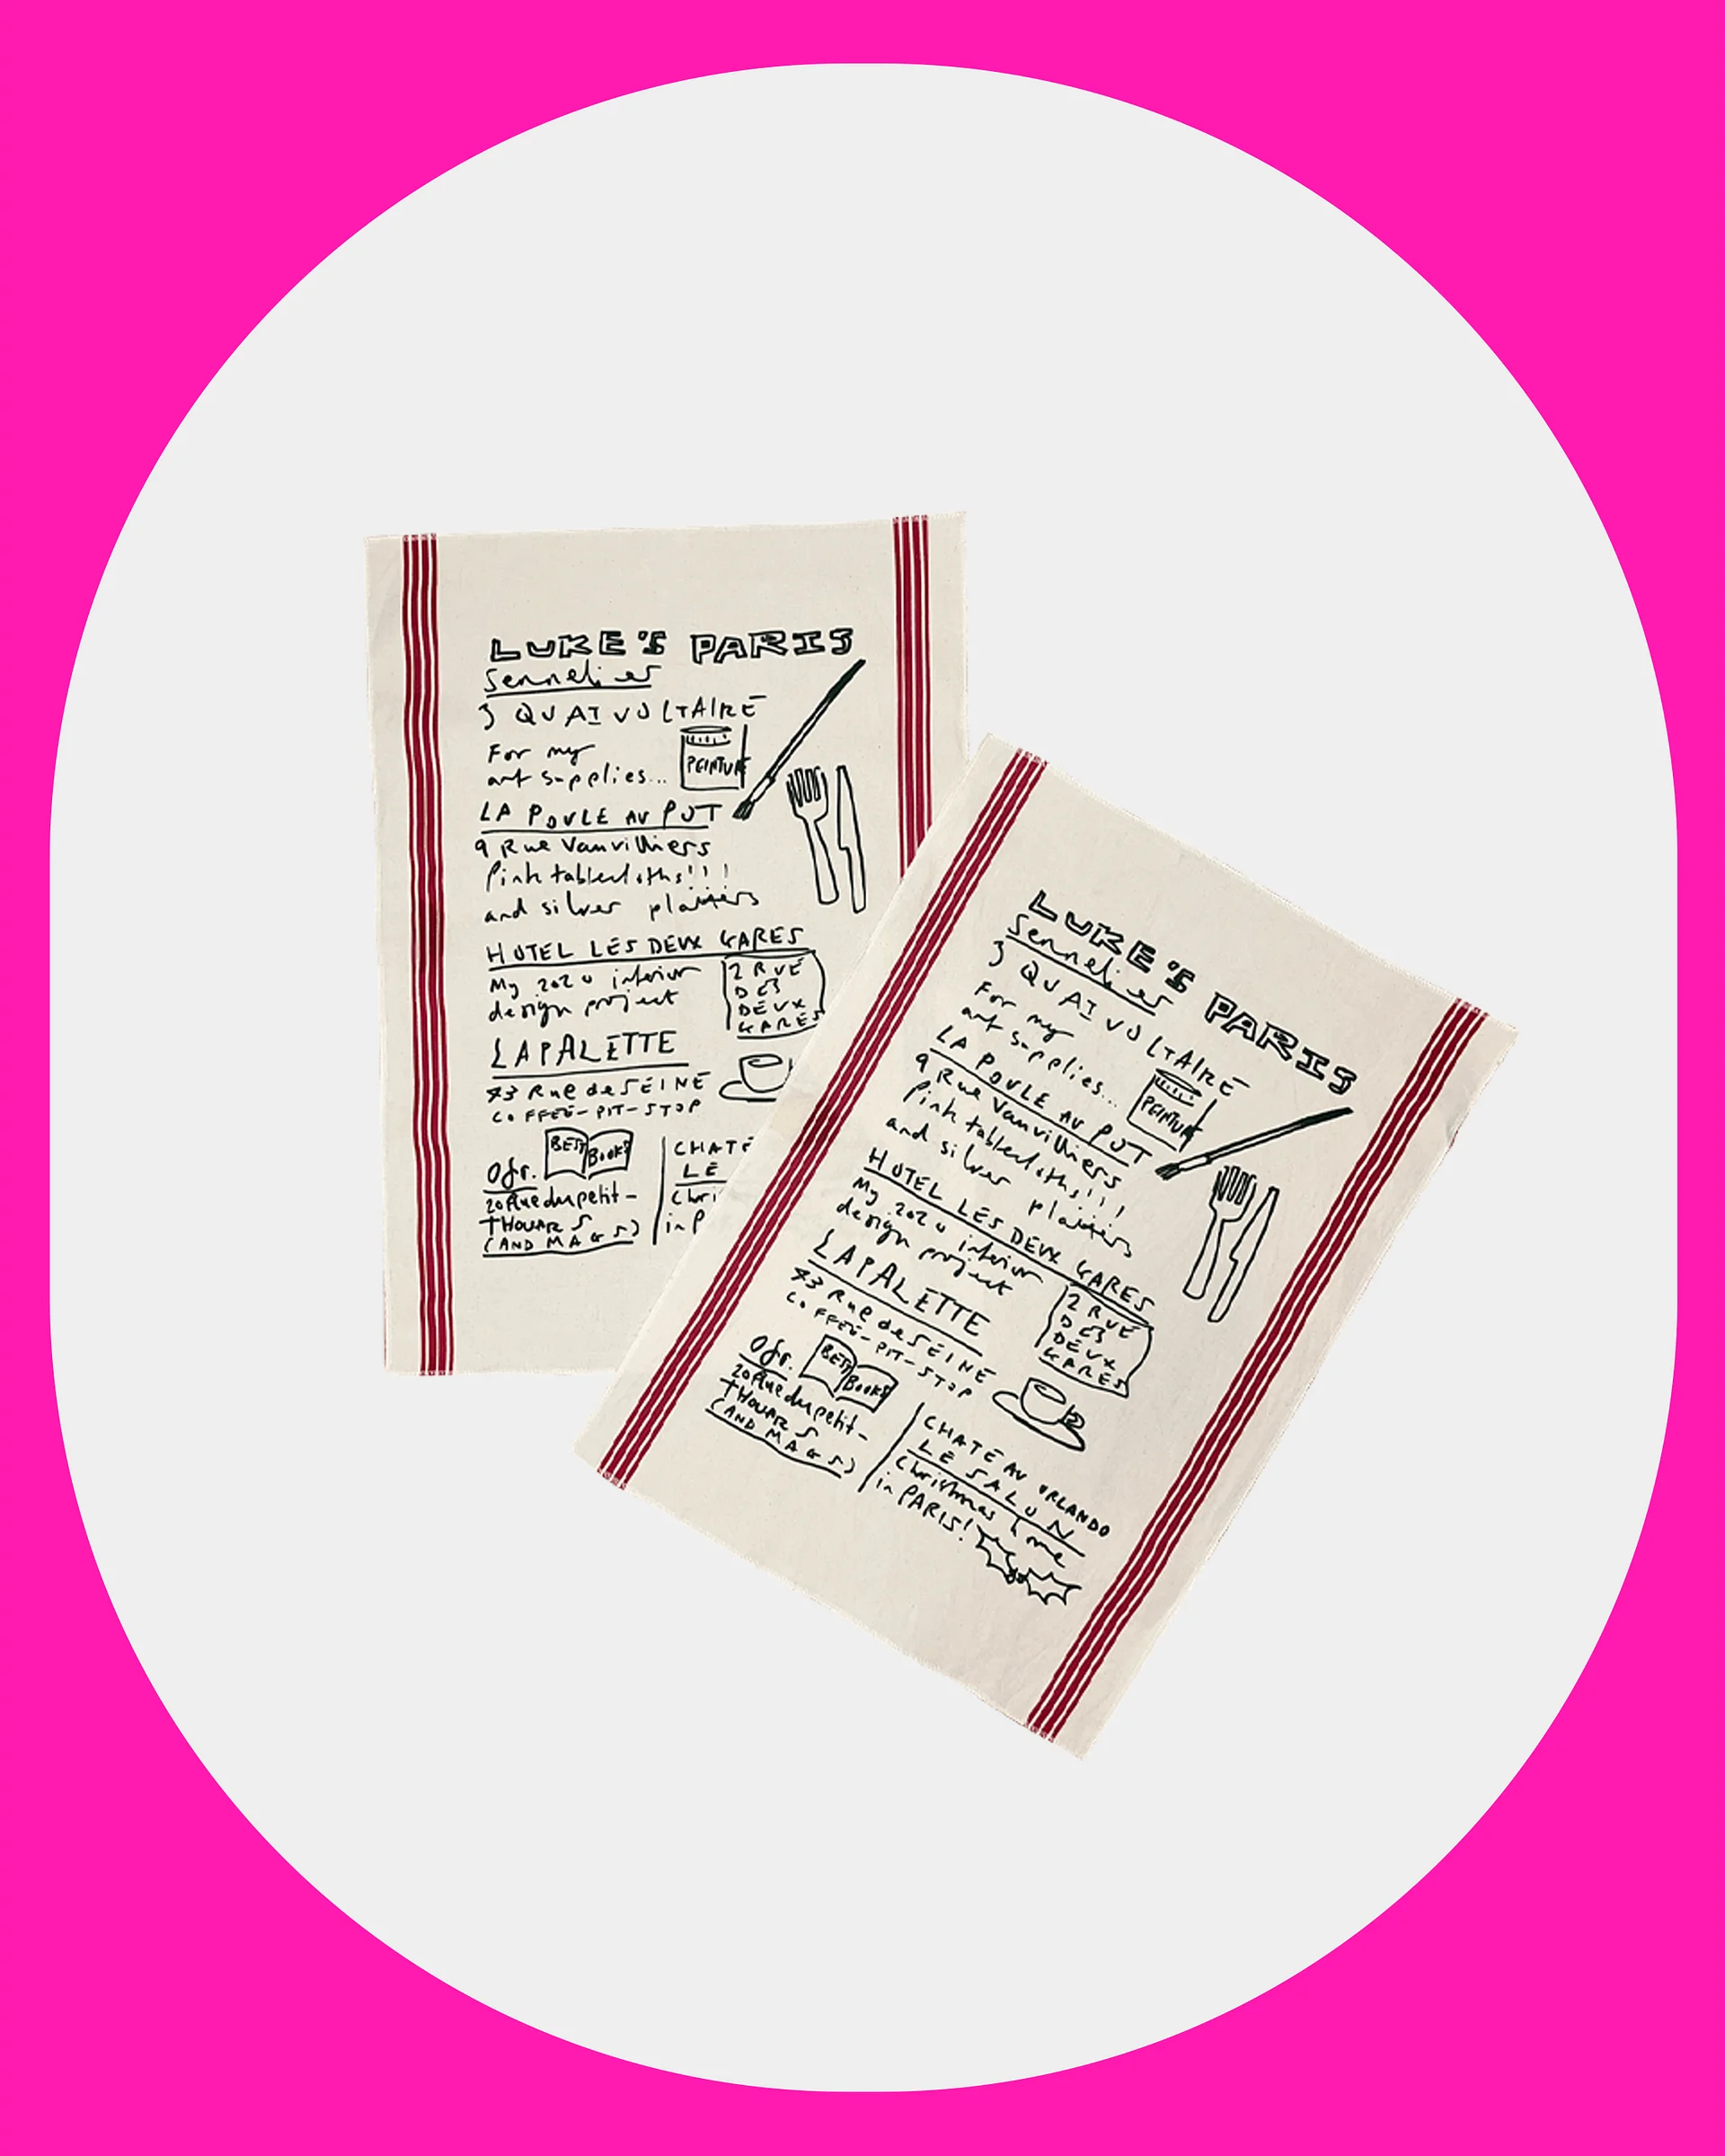 LUKE'S PARIS
Sennelier
3 QUAI VOLTAIRE
For my
art supplies...
PEINTURE
LA POULE AU POT
9 Rue Vanvilliers
Pink tablecloths!!!
and silver platters
HOTEL LES DEUX GARES
My 2020 interior
design project
2 RUE
DES
DEUX
GARES
LA PALETTE
43 Rue de SEINE
COFFEE-PIT-STOP
Ofr.
BEST BOOKS
20 Rue du petit-
THOUARS
(AND MAGS)
CHATE
LE
Chri
in P
LUKE'S PARIS
Sennelier
3 QUAI VOLTAIRE
For my
art supplies...
PEINTURE
LA POULE AU POT
9 Rue Vanvilliers
Pink tablecloths!!!
and silver platters
HOTEL LES DEUX GARES
My 2020 interior
design project
2 RUE
DES
DEUX
GARES
LA PALETTE
43 Rue de SEINE
COFFEE-PIT-STOP
Ofr.
BEST BOOKS
20 Rue du petit-
THOUARS
(AND MAGS)
CHATEAU ORLANDO
LE SALON
Christmas Time
in PARIS!